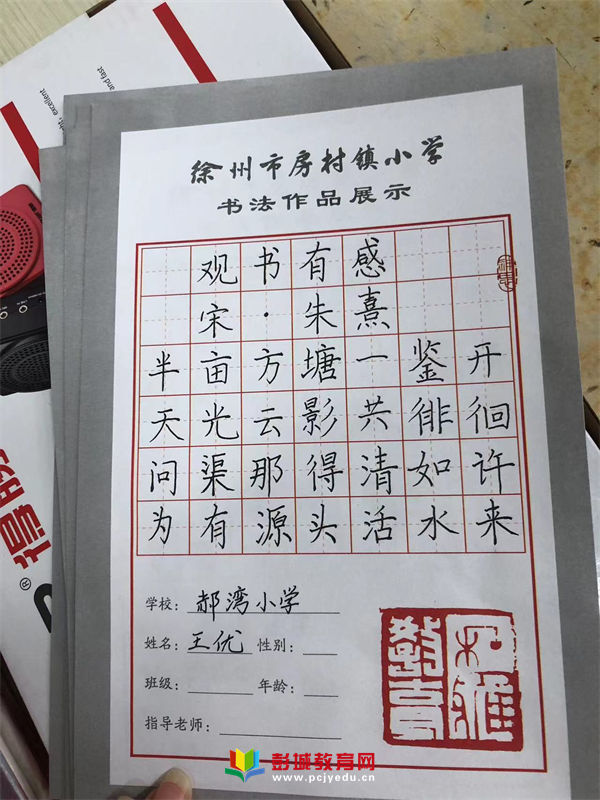 徐州市房村镇小学
书法作品展示
观书有感
宋·朱熹
半亩方塘一鉴开
天光云影共徘徊
问渠那得清如许
为有源头活水来
学校：郝湾小学
姓名：王优 性别：
班级： 年龄：
指导老师：
彭城教育网
www.pcjyedu.cn
excellent
and fast